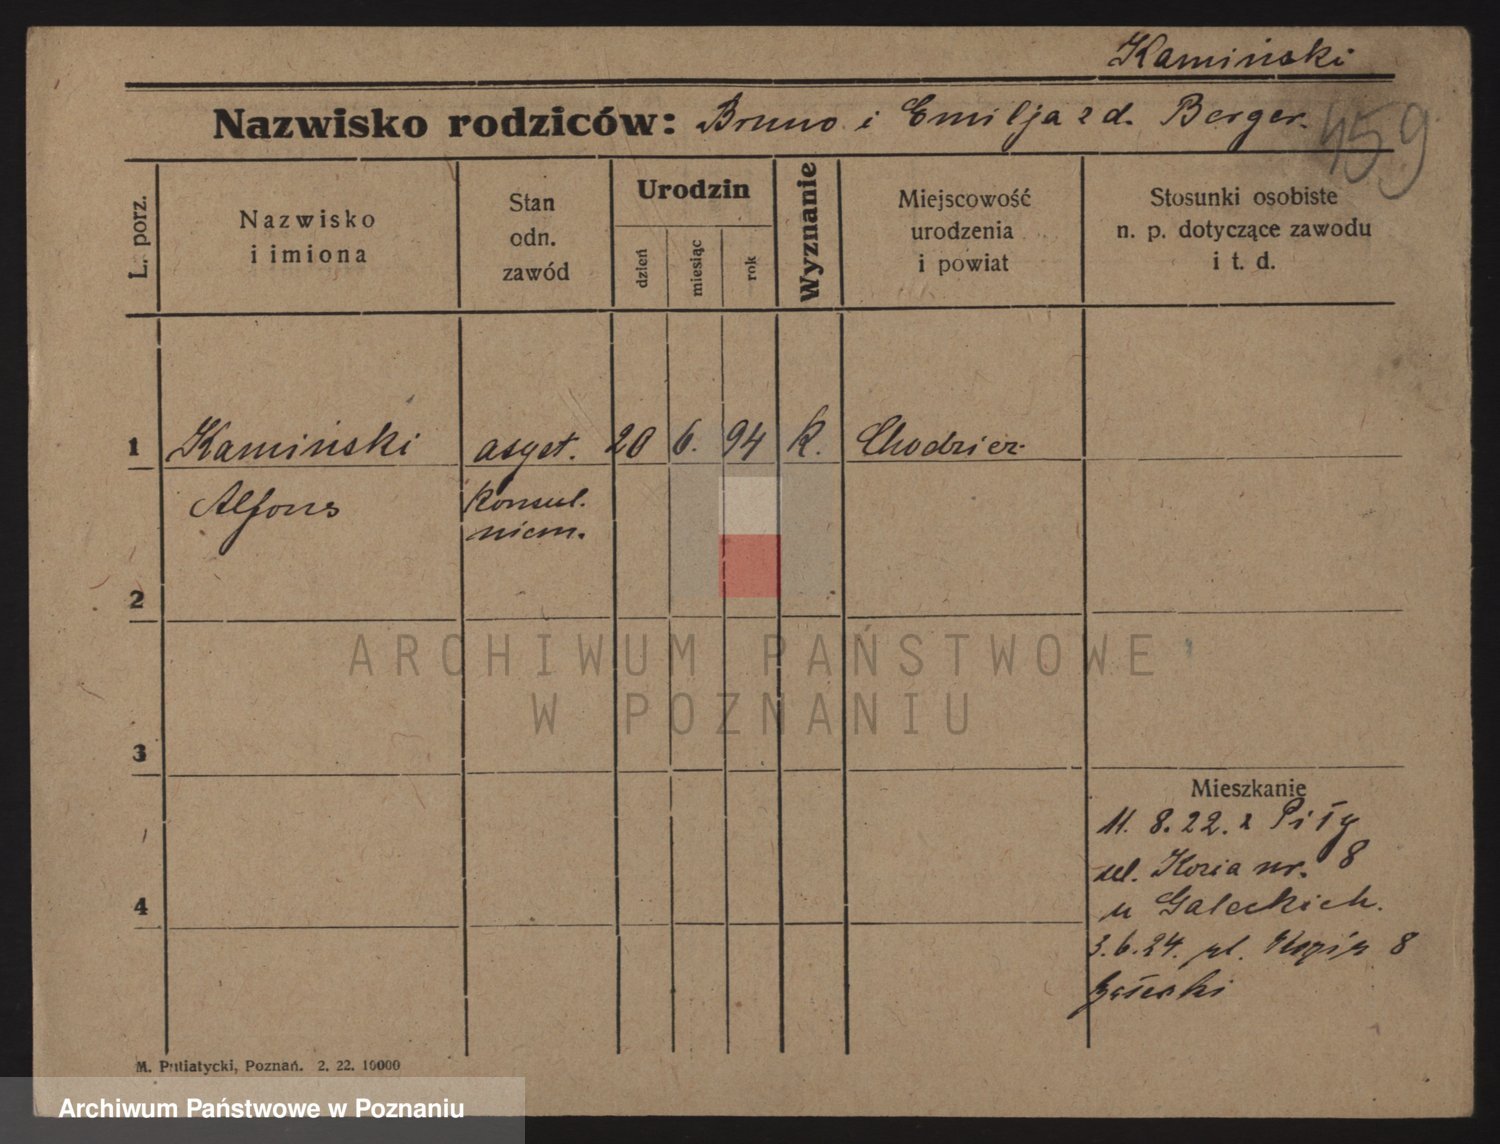 Kamiński
Nazwisko rodziców: Bruno i Emilja z d. Berger.
459
L. porz.
Nazwisko
i imiona
Stan
odn.
zawód
Urodzin
dzień
miesiąc
rok
Wyznanie
Miejscowość
urodzenia
i powiat
Stosunki osobiste
n. p. dotyczące zawodu
i t. d.
1 Kamiński asyst. 20 6. 94 k. Chodzież
Alfons konsul.
niem.
2
ARCHIWUM PAŃSTWOWE
W POZNANIU
3
Mieszkanie
11. 8. 22. z Piły
ul. Kozia nr. 8
4
u Gałeckich.
3.6.24. ul. Kozia 8
M. Putiatycki, Poznań. 2. 22. 10000
Archiwum Państwowe w Poznaniu